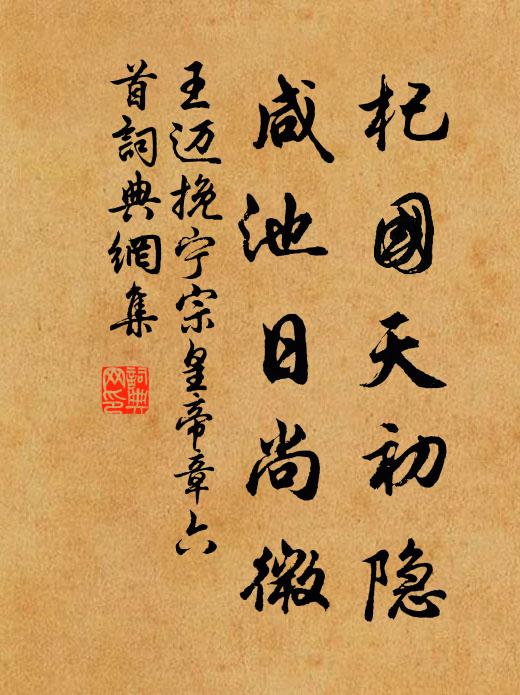 杞國天初隐
咸池日尚微
王迈挽宁宗皇帝章六
首詞典網集
詞典
网印